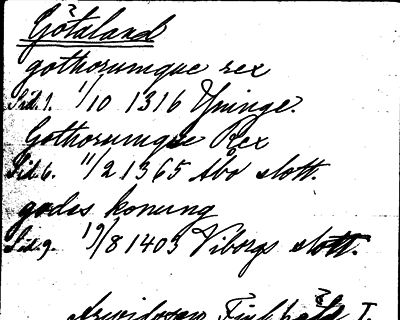 Götaland
gothorumque rex
Sid. 1. 1/10 1316 Yninge.
Gothorumque Rex
Sid. 6. 11/2 1365 Åbo slott.
godes konung
Sid. 9. 19/8 1403 Viborgs slott.
Arwidsson I.